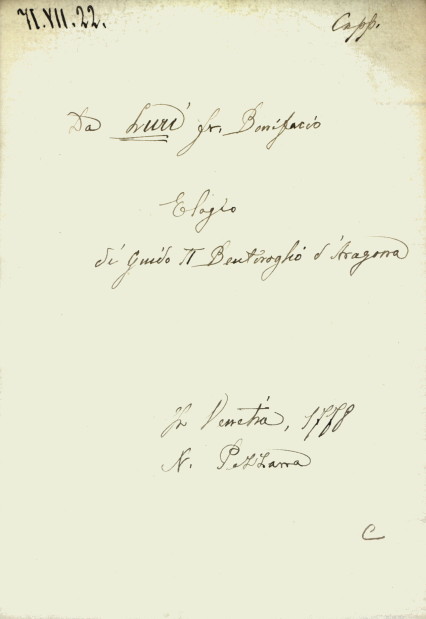 71.VII.22.
Capp.
Da Luri fr. Bonifacio
Elogio
di Guido II Bentivoglio d'Aragona
In Venetia, 1778
N. Pezzana
C